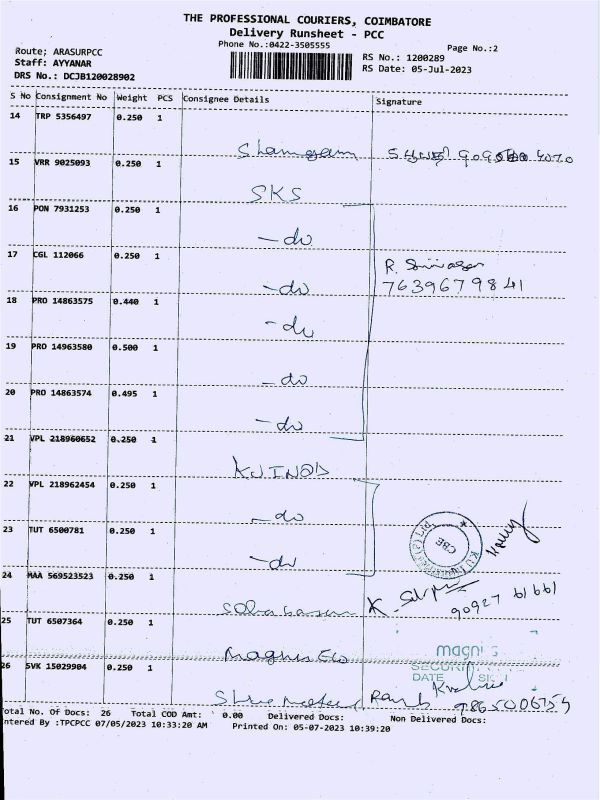 THE PROFESSIONAL COURIERS, COIMBATORE
Delivery Runsheet - PCC
Phone No.:0422-3505555
Page No.:2
Route; ARASURPCC
Staff: AYYANAR
DRS No.: DCJB120028902
RS No.: 1200289
RS Date: 05-Jul-2023
S No Consignment No Weight PCS Consignee Details Signature
14 TRP 5356497 0.250 1
15 VRR 9025093 0.250 1 SKS
16 PON 7931253 0.250 1 -do
17 CGL 112066 0.250 1 -do R.
7639679841
18 PRO 14863575 0.440 1 -do
19 PRO 14963580 0.500 1 -do
20 PRO 14863574 0.495 1 -do
21 VPL 218960652 0.250 1
22 VPL 218962454 0.250 1 -do
23 TUT 6500781 0.250 1 -do
CBE
24 MAA 569523523 0.250 1 K.
90927 61661
25 TUT 6507364 0.250 1 Magnis Eco
magnis
SECURITY
DATE
26 SVK 15029904 0.250 1
Total No. Of Docs: 26 Total COD Amt: 0.00 Delivered Docs: Non Delivered Docs:
ntered By :TPCPCC 07/05/2023 10:33:20 AM Printed On: 05-07-2023 10:39:20